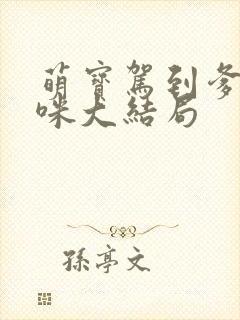 萌寳駕到爹
咪大結局
孫亭文